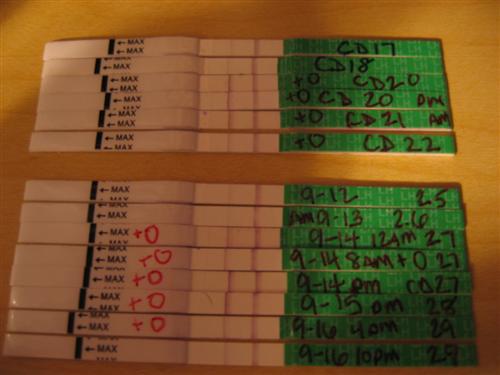 ← MAX CD17
← MAX CD18
← MAX +O CD20
← MAX +O CD 20 pm
← MAX +O CD 21 AM
← MAX +O CD 22
← MAX 9-12 25
← MAX AM 9-13 26
← MAX +O 9-14 12AM 27
← MAX +O 9-14 8AM +O 27
← MAX +O 9-14 pm CD27
← MAX +O 9-15 pm 28
← MAX +O 9-16 4pm 29
← MAX 9-16 10pm 29